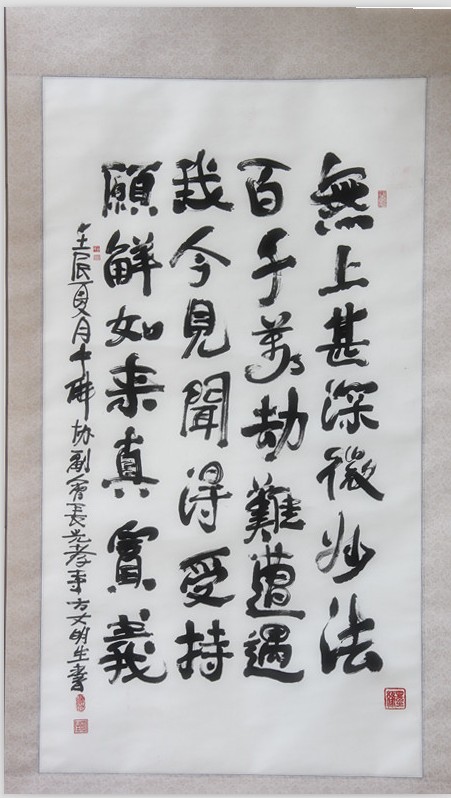 無上甚深微妙法
百千萬劫難遭遇
我今見聞得受持
願解如来真實義
壬辰夏月中佛协副會長光孝寺方丈明生書